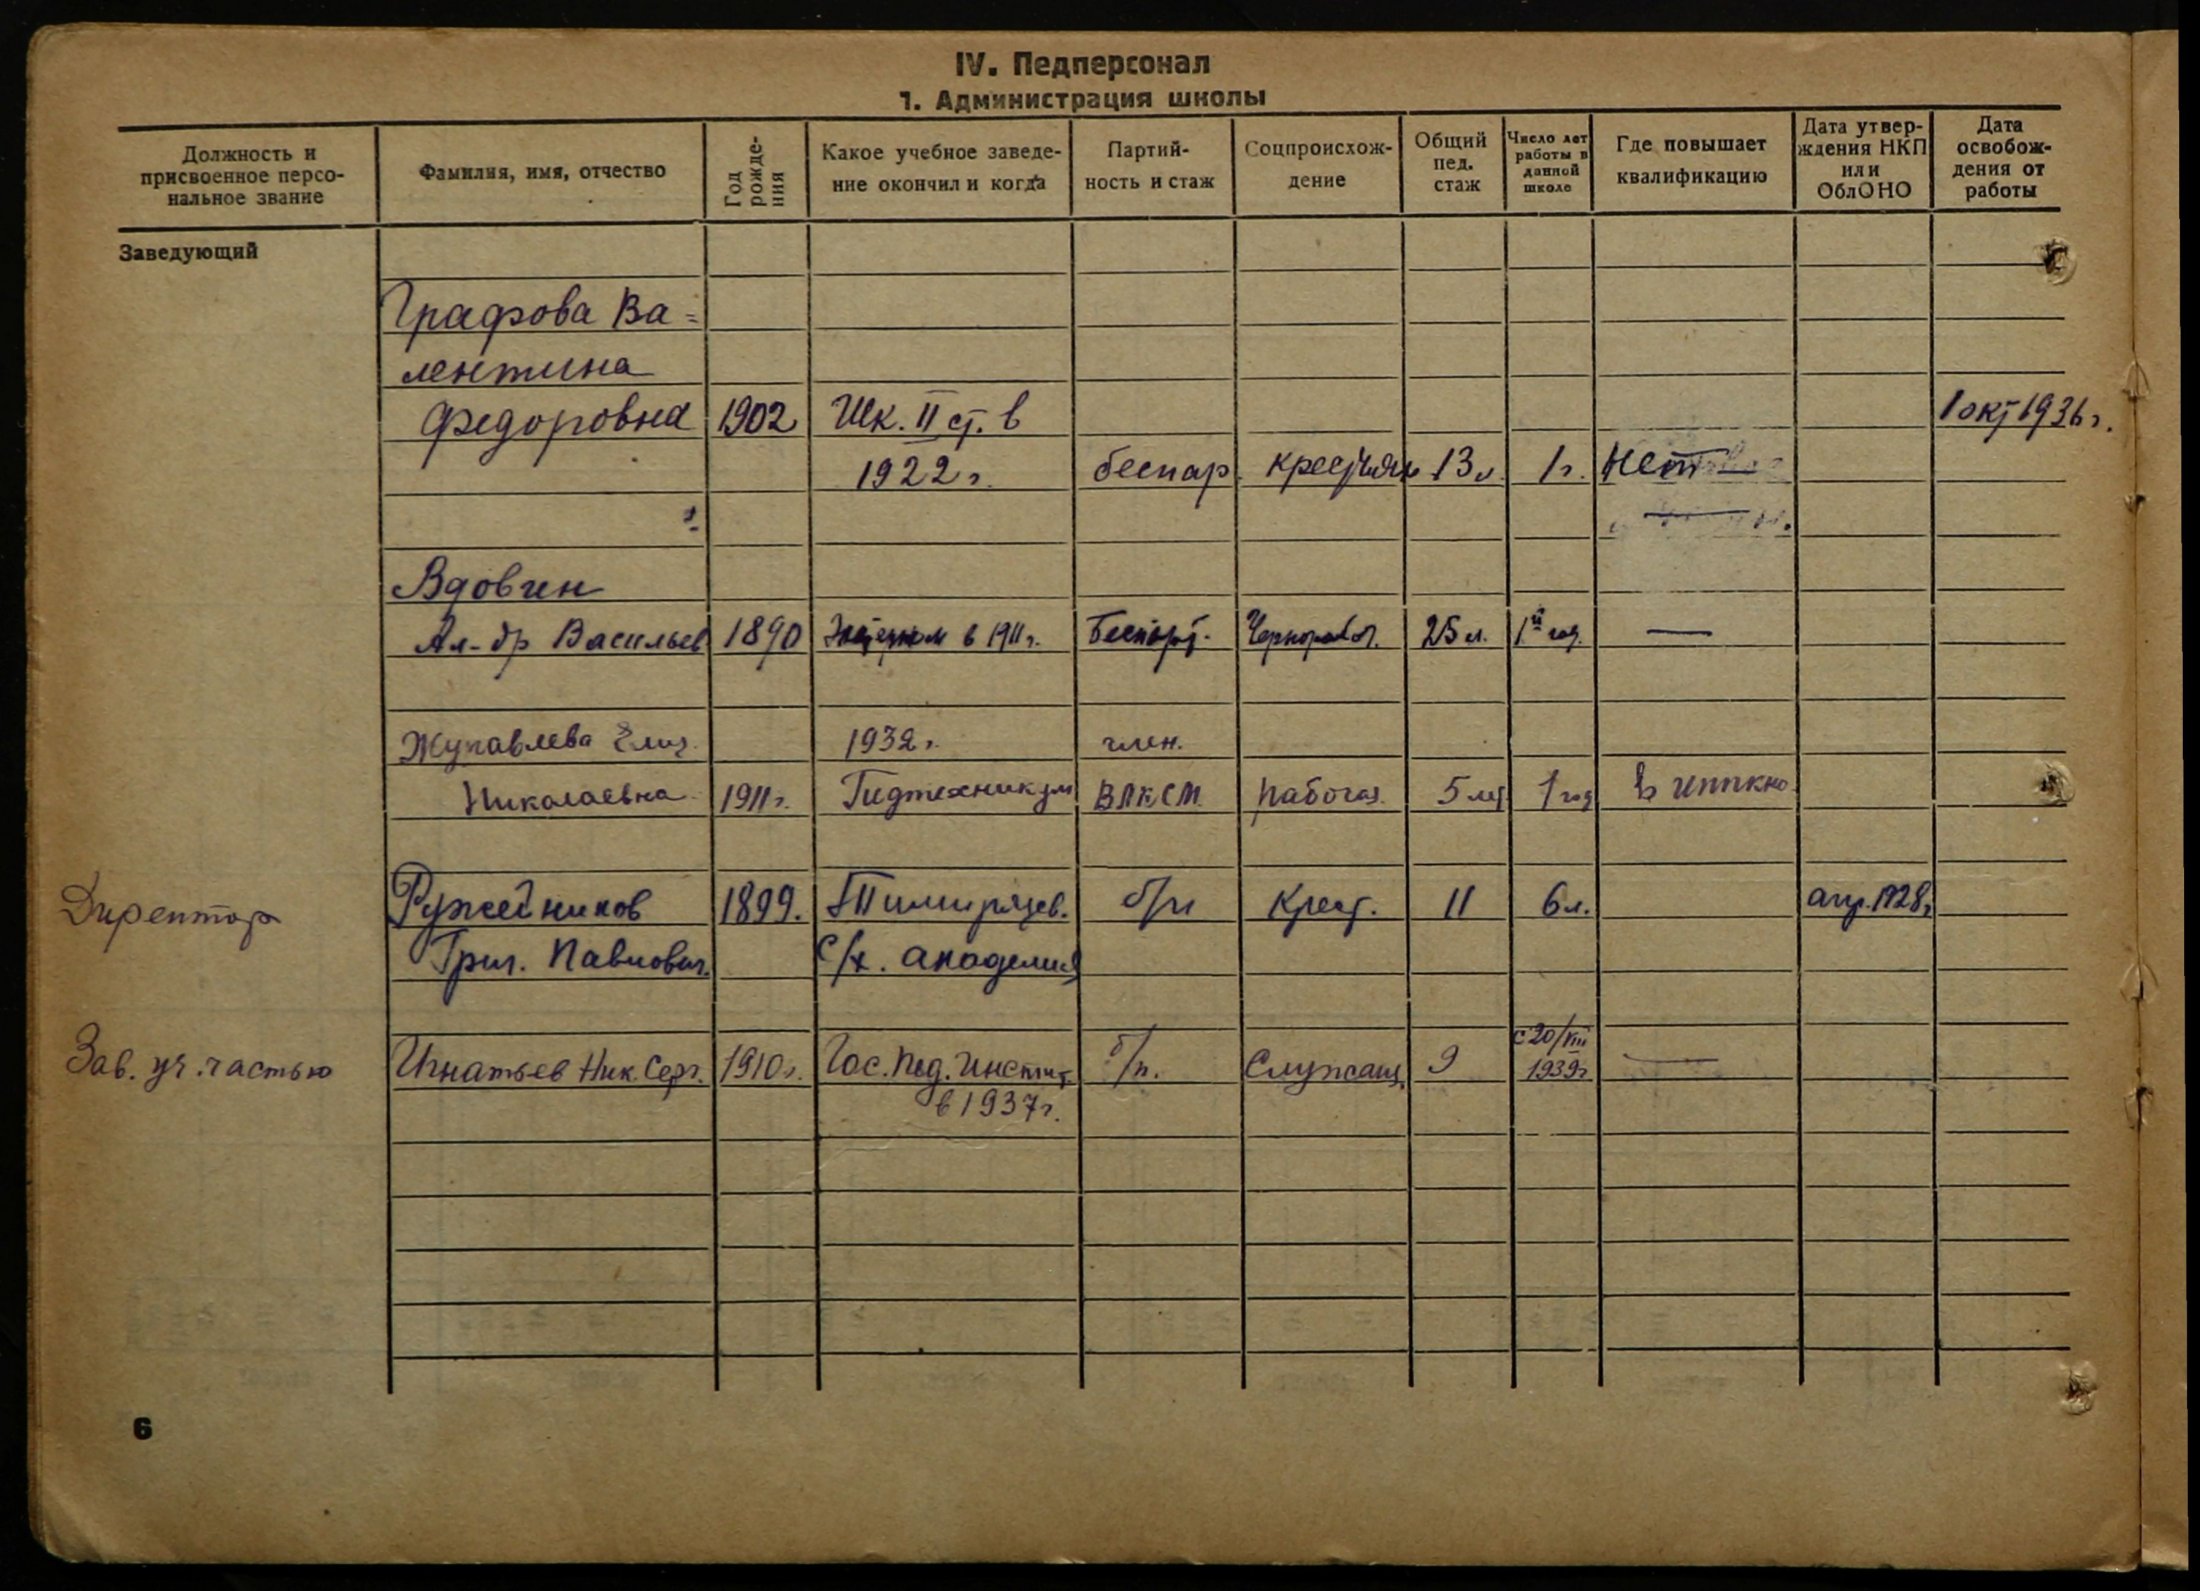 IV. Педперсонал
1. Администрация школы
Должность и присвоенное персо-нальное звание
Фамилия, имя, отчество
Год рожде-ния
Какое учебное заведе-ние окончил и когда
Партий-ность и стаж
Соцпроисхож-дение
Общий пед. стаж
Число лет работы в данной школе
Где повышает квалификацию
Дата утвер-ждения НКП или ОблОНО
Дата освобож-дения от работы
Заведующий
Графова Ва=
лентина
Федоровна 1902 Шк. II ст. в 1 окт 1936 г.
1922 г. беспар. 13 л. 1 г. Нет
Вдовин
Ал-др Васильев 1890 в 1911 г. Беспарт. Чернорабоч. 25 л. 1й год. —
Журавлева Елиз. 1932 г. член.
Николаевна 1911 г. Педтехникум ВЛКСМ рабочая. 5 лет 1 год в
Директор Ружейников 1899. Тимирязев. б/п Крест. 11 6 л. апр. 1928 г.
Григ. Павлович. с/х. академия
Зав. уч. частью Игнатьев Ник. Серг. 1910 г. Гос. Пед. Инстит. б/п. Служащ. 9 с 20/VIII 1939 г —
в 1937 г.
6